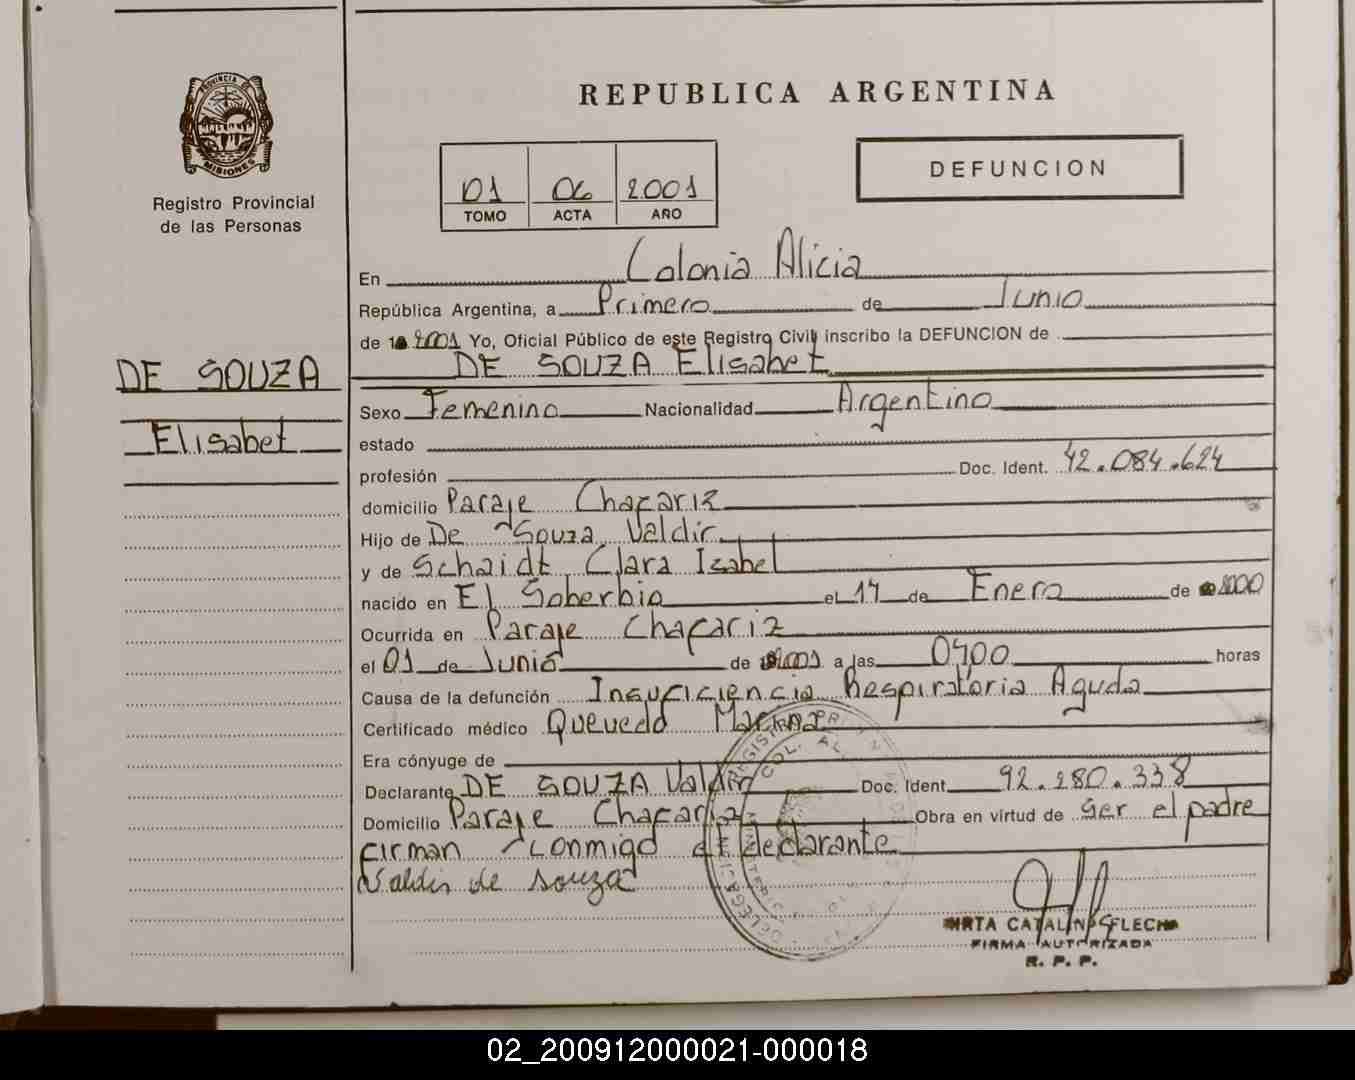 PROVINCIA DE
MISIONES
Registro Provincial
de las Personas
REPUBLICA ARGENTINA
DEFUNCION
01 06 2001
TOMO ACTA AÑO
En Colonia Alicia
República Argentina, a Primero de Junio
de 2001 Yo, Oficial Público de este Registro Civil inscribo la DEFUNCION de
DE SOUZA Elisabet
DE SOUZA
Elisabet
Sexo Femenino Nacionalidad Argentino
estado
profesión Doc. Ident. 42.084.624
domicilio Paraje Chafariz
Hijo de De Souza Valdir
y de Schaidt Clara Izabel
nacido en El Soberbio el 14 de Enero de 2000
Ocurrida en Paraje Chafariz
el 01 de Junio de 2001 a las 0400 horas
Causa de la defunción Insuficiencia Respiratoria Aguda
Certificado médico Quevedo
Era cónyuge de
Declarante DE SOUZA Valdir Doc. Ident. 92.280.338
Domicilio Paraje Chafariz Obra en virtud de ser el padre
firman conmigo el declarante
Valdir de Souza
MIRTA CATALINA FLECHA
FIRMA AUTORIZADA
R. P. P.
02_200912000021-000018